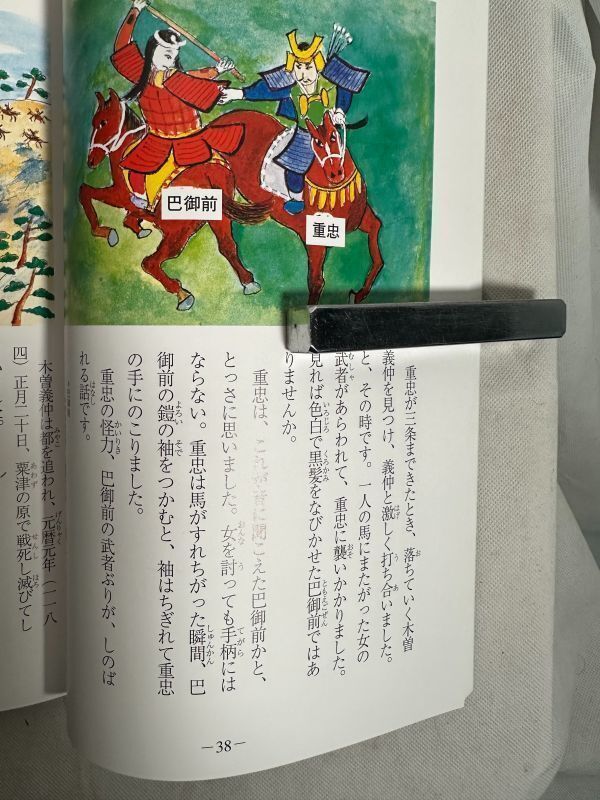 巴御前
重忠
重忠が三条まできたとき、落ちていく木曽
義仲を見つけ、義仲と激しく打ち合いました。
と、その時です。一人の馬にまたがった女の
武者があらわれて、重忠に襲いかかりました。
見れば色白で黒髪をなびかせた巴御前ではあ
りませんか。
重忠は、これが音に聞こえた巴御前かと、
とっさに思いました。女を討っても手柄には
ならない。重忠は馬がすれちがった瞬間、巴
御前の鎧の袖をつかむと、袖はちぎれて重忠
の手にのこりました。
重忠の怪力、巴御前の武者ぶりが、しのば
れる話です。
―38―
木曽義仲は都を追われ、元暦元年（一一八
四）正月二十日、粟津の原で戦死し滅びてし